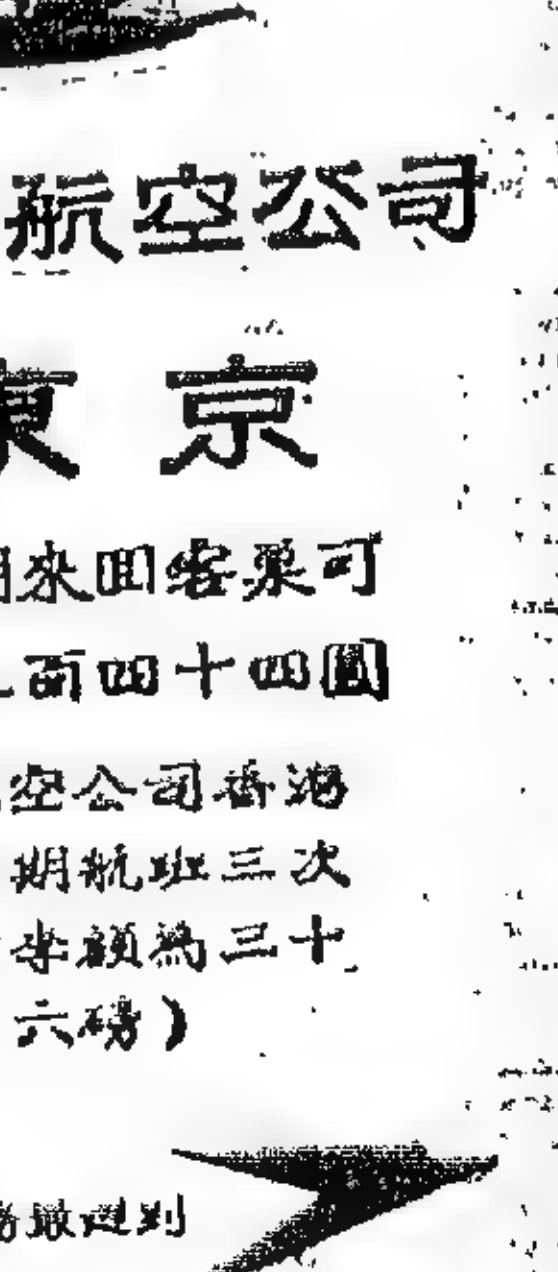 航空公司
東京
期來回客票可
百四十四圓
空公司香港
期航班三次
李額為三十
六磅）
務最週到